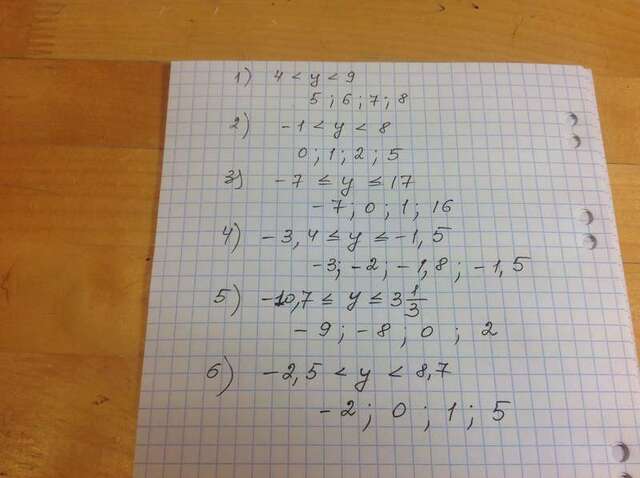 1) 4 < y < 9
5 ; 6 ; 7 ; 8
2) -1 < y < 8
0 ; 1 ; 2 ; 5
3) -7 ≤ y ≤ 17
-7 ; 0 ; 1 ; 16
4) -3,4 ≤ y ≤ -1,5
-3; -2; -1,8 ; -1,5
5) -10,7 ≤ y ≤ 3 1/3
-9 ; -8 ; 0 ; 2
6) -2,5 < y < 8,7
-2 ; 0 ; 1 ; 5